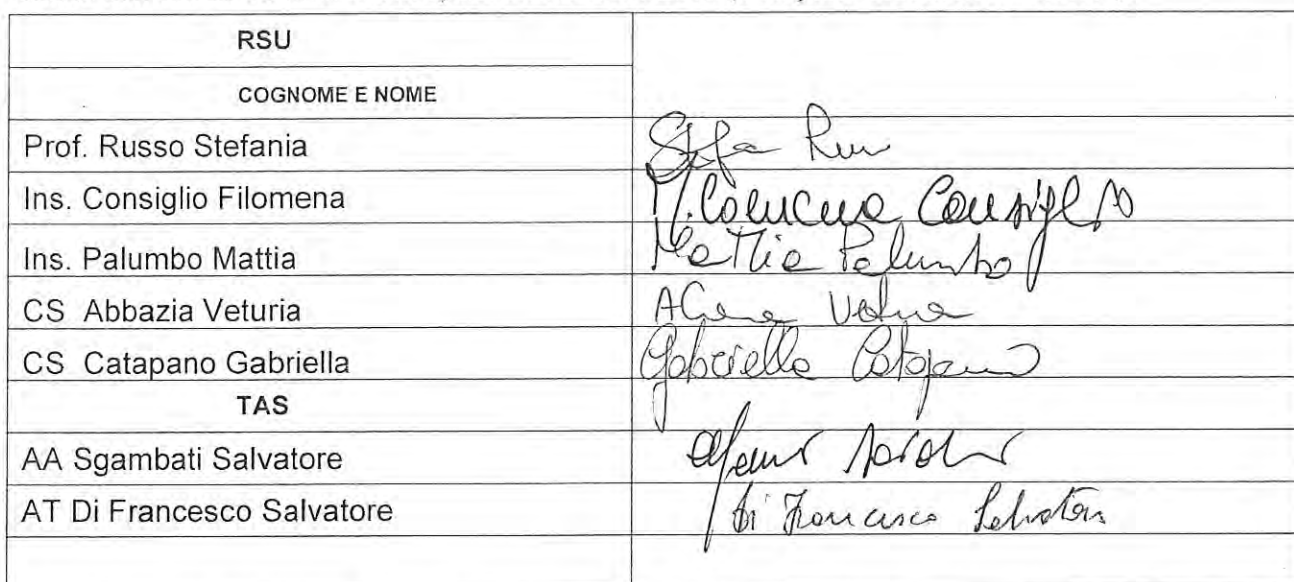 RSU
COGNOME E NOME
Prof. Russo Stefania
Ins. Consiglio Filomena Consiglio
Ins. Palumbo Mattia Mattia Palumbo
CS Abbazia Veturia
CS Catapano Gabriella Gabriella Catapano
TAS
AA Sgambati Salvatore
AT Di Francesco Salvatore Di Francesco Salvatore